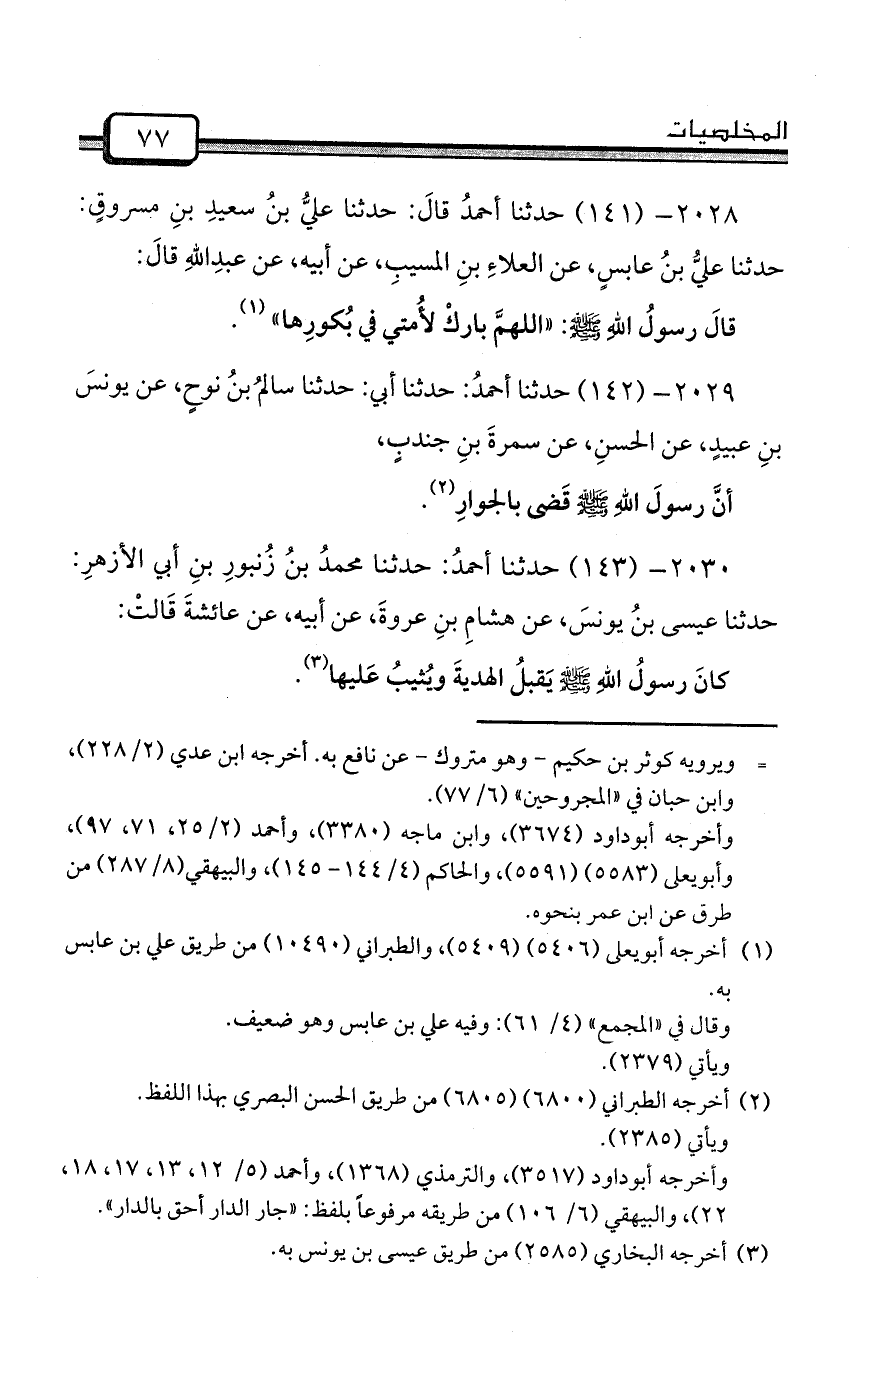 المخلصيات
٧٧
٢٠٢٨- (١٤١) حدثنا أحمدُ قالَ: حدثنا عليُّ بنُ سعيدِ بنِ مسروقٍ:
حدثنا عليُّ بنُ عابسٍ، عن العلاءِ بنِ المسيبِ، عن أبيه، عن عبدِاللهِ قالَ:
قالَ رسولُ اللهِ ﷺ: «اللهمَّ باركْ لأُمتي في بُكورِها»(١).
٢٠٢٩- (١٤٢) حدثنا أحمدُ: حدثنا أبي: حدثنا سالمُ بنُ نوحٍ، عن يونسَ
بنِ عبيدٍ، عن الحسنِ، عن سمرةَ بنِ جندبٍ،
أنَّ رسولَ اللهِ ﷺ قَضى بالجوارِ(٢).
٢٠٣٠- (١٤٣) حدثنا أحمدُ: حدثنا محمدُ بنُ زُنبورِ بنِ أبي الأزهرِ:
حدثنا عيسى بنُ يونسَ، عن هشامِ بنِ عروةَ، عن أبيه، عن عائشةَ قَالتْ:
كانَ رسولُ اللهِ ﷺ يَقبلُ الهديةَ ويُثيبُ عَليها(٣).
= ويرويه كوثر بن حكيم - وهو متروك - عن نافع به. أخرجه ابن عدي (٢/ ٢٢٨)،
وابن حبان في «المجروحين» (٦/ ٧٧).
وأخرجه أبوداود (٣٦٧٤)، وابن ماجه (٣٣٨٠)، وأحمد (٢/ ٢٥، ٧١، ٩٧)،
وأبويعلى (٥٥٨٣) (٥٥٩١)، والحاكم (٤/ ١٤٤- ١٤٥)، والبيهقي(٨/ ٢٨٧) من
طرق عن ابن عمر بنحوه.
(١) أخرجه أبويعلى (٥٤٠٦) (٥٤٠٩)، والطبراني (١٠٤٩٠) من طريق علي بن عابس
به.
وقال في «المجمع» (٤/ ٦١): وفيه علي بن عابس وهو ضعيف.
ويأتي (٢٣٧٩).
(٢) أخرجه الطبراني (٦٨٠٠) (٦٨٠٥) من طريق الحسن البصري بهذا اللفظ.
ويأتي (٢٣٨٥).
وأخرجه أبوداود (٣٥١٧)، والترمذي (١٣٦٨)، وأحمد (٥/ ١٢، ١٣، ١٧، ١٨،
٢٢)، والبيهقي (٦/ ١٠٦) من طريقه مرفوعاً بلفظ: «جار الدار أحق بالدار».
(٣) أخرجه البخاري (٢٥٨٥) من طريق عيسى بن يونس به.